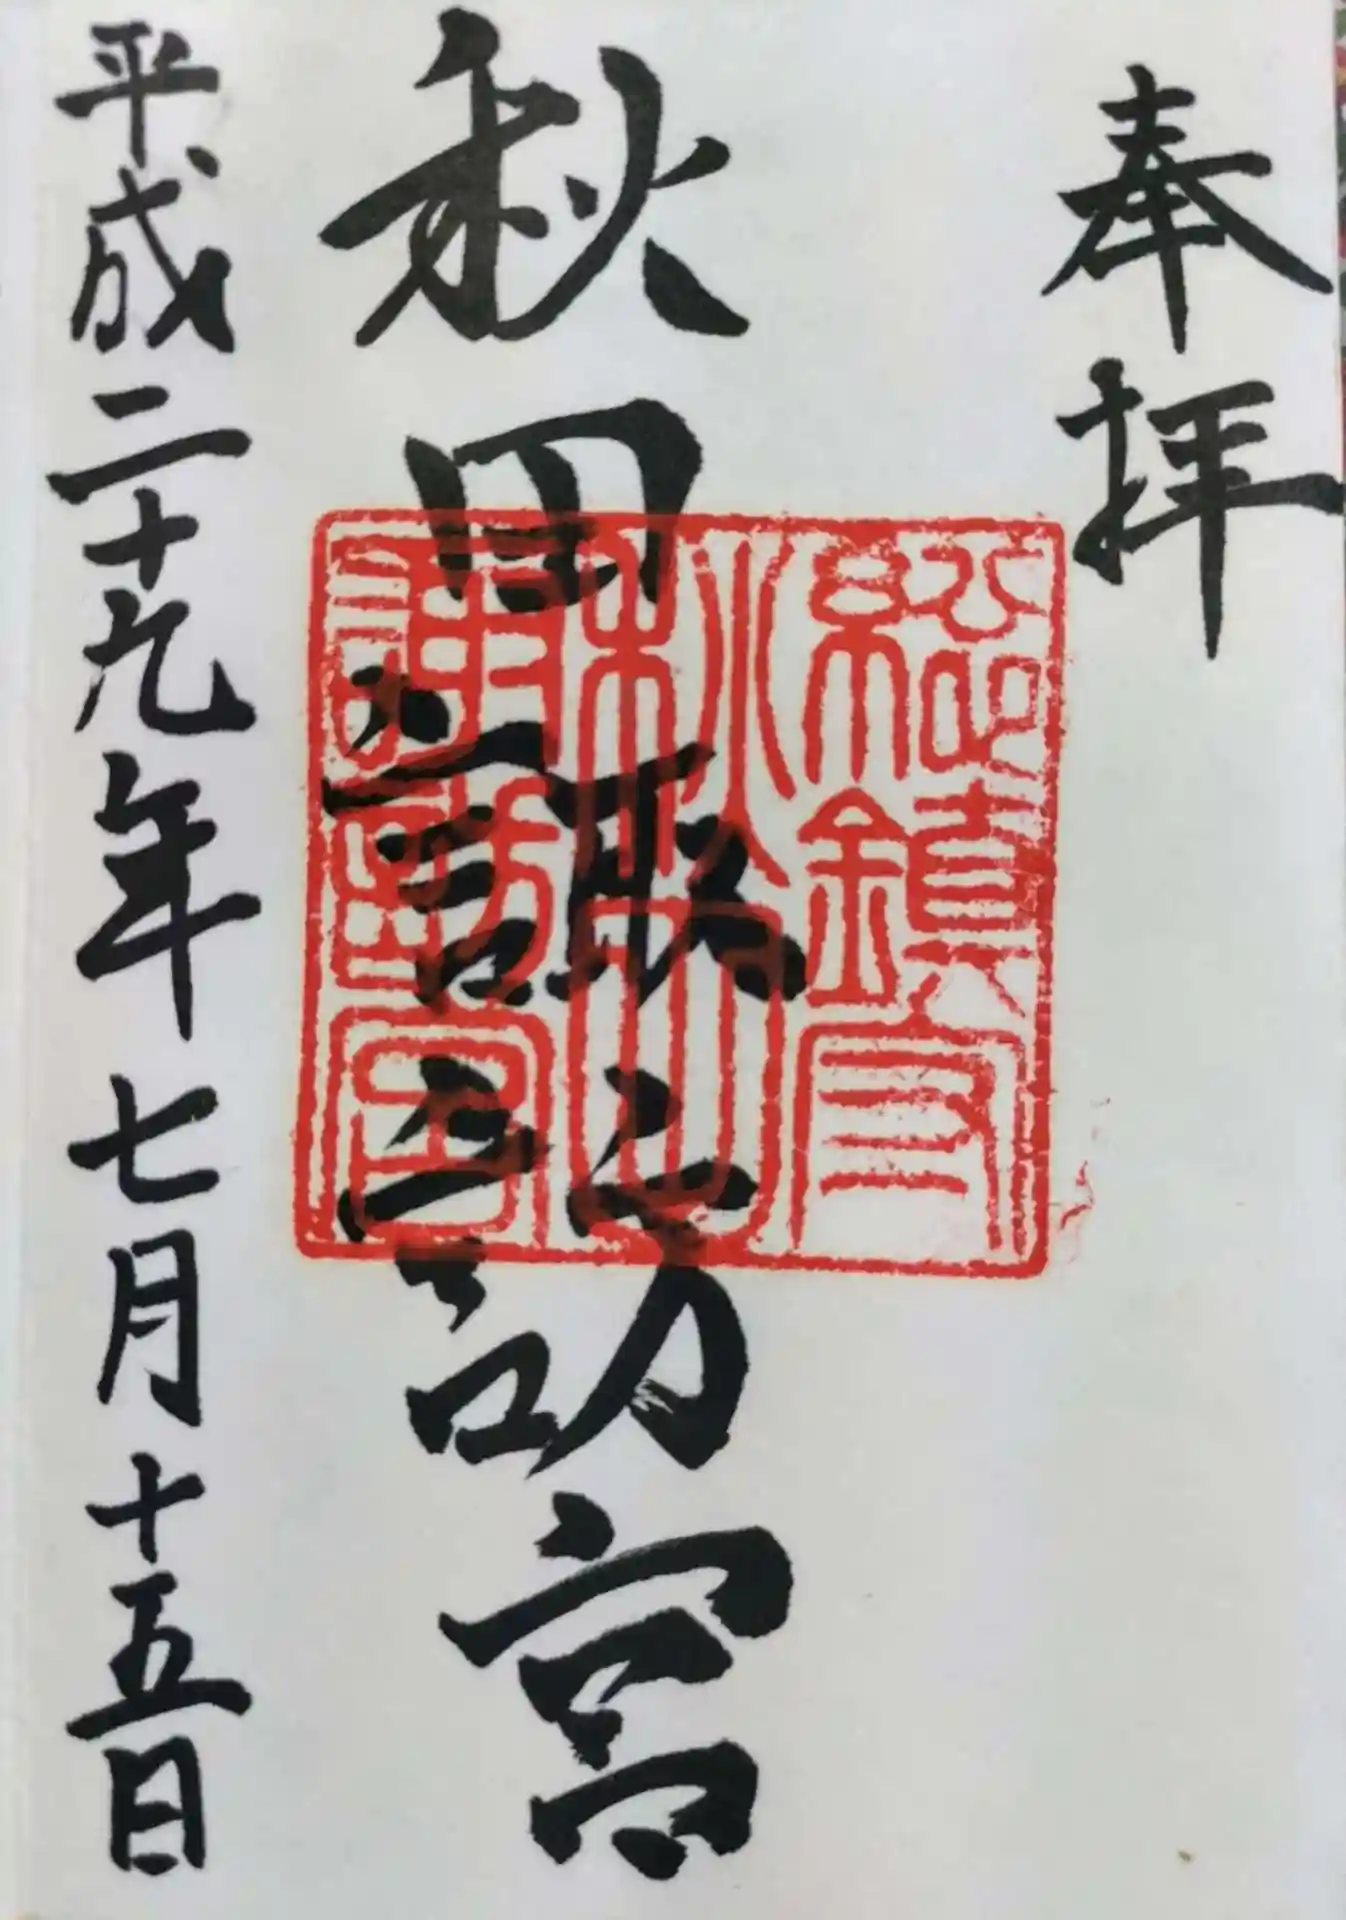 奉拝
秋田諏訪宮
総鎮守
秋田
諏訪宮
平成二十九年七月十五日